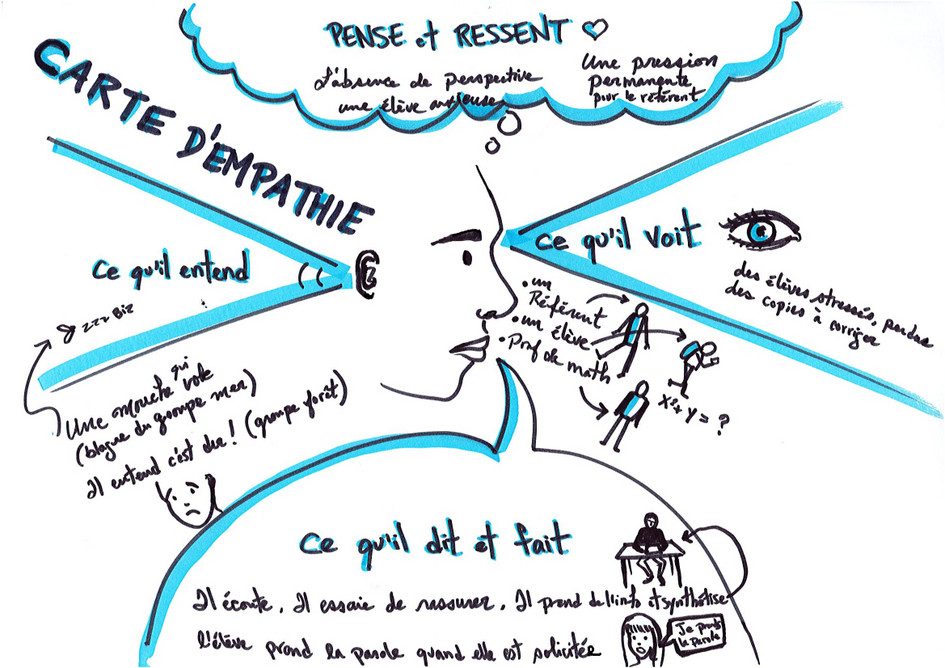 CARTE D'EMPATHIE
PENSE et RESSENT
L'absence de perspective
une élève anxieuse
Une pression
permanente
pour le référent
ce qu'il voit
des élèves stressés, perdus
des copies à corriger
ce qu'il entend
zzz Biz
Une mouche qui vole
(blague du groupe mer)
Il entend c'est dur ! (groupe forêt)
• un
Référent
• un élève
• Prof de math
x²+ y = ?
ce qu'il dit et fait
Il écoute. Il essaie de rassurer. Il prend de l'info et synthétise
l'élève prend la parole quand elle est sollicitée
Je prends
la parole